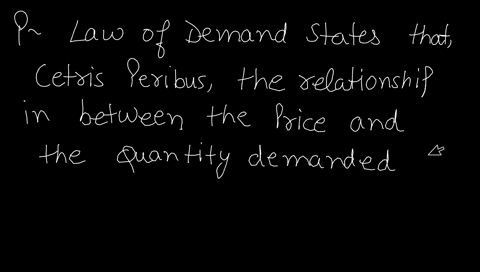 P~ Law of Demand States that,
Cetris Peribus, the relationship
in between the Price and
the Quantity demanded